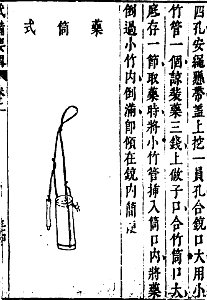 四孔安繩懸帶蓋上挖一員孔合銃口大用小
竹管一個諒裝藥三錢上做子口合竹筒口大
底存一節取藥時將小竹管挿入筒口內將藥
倒過小竹內倒滿即傾在銃內簡便
藥筒式